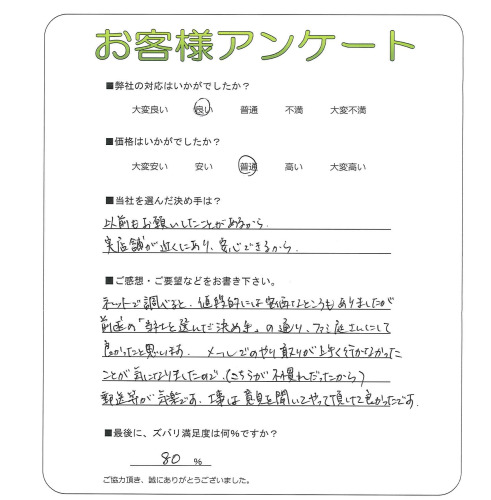 お客様アンケート
■弊社の対応はいかがでしたか？
大変良い 良い 普通 不満 大変不満
■価格はいかがでしたか？
大変安い 安い 普通 高い 大変高い
■当社を選んだ決め手は？
以前もお願いしたことがあるから。
実店舗が近くにあり、安心できるから。
■ご感想・ご要望などをお書き下さい。
ネットで調べると、値段的には安価なところもありましたが
前述の「当社を選んだ決め手」の通り、ファミ庭さんにして
良かったと思います。 メールでのやり取りが上手く行かなかった
ことが気になりましたので、(こちらが不慣れだったから)
郵送等が気楽です。工事は意見を聞いてやって頂けて良かったです。
■最後に、ズバリ満足度は何％ですか？
80 ％
ご協力頂き、誠にありがとうございました。